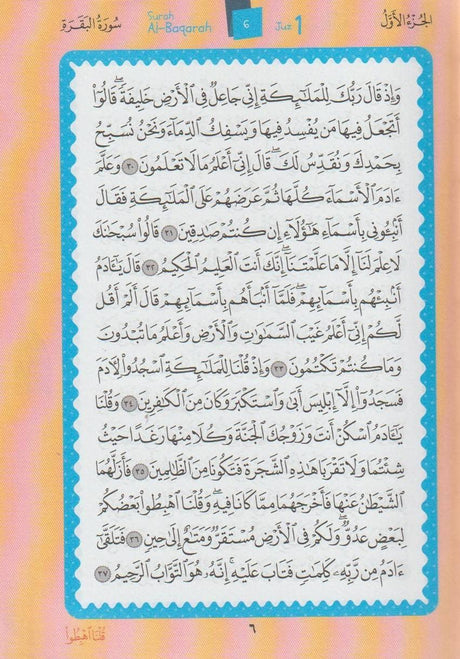 الجزء الأول
Juz 1
6
Surah
Al-Baqarah
سورة البقرة
وَإِذْ قَالَ رَبُّكَ لِلْمَلَٰٓئِكَةِ إِنِّي جَاعِلٌ فِي ٱلْأَرْضِ خَلِيفَةًۖ قَالُوٓا۟
أَتَجْعَلُ فِيهَا مَن يُفْسِدُ فِيهَا وَيَسْفِكُ ٱلدِّمَآءَ وَنَحْنُ نُسَبِّحُ
بِحَمْدِكَ وَنُقَدِّسُ لَكَۖ قَالَ إِنِّيٓ أَعْلَمُ مَا لَا تَعْلَمُونَ ٣٠ وَعَلَّمَ
ءَادَمَ ٱلْأَسْمَآءَ كُلَّهَا ثُمَّ عَرَضَهُمْ عَلَى ٱلْمَلَٰٓئِكَةِ فَقَالَ
أَنۢبِـُٔونِي بِأَسْمَآءِ هَٰٓؤُلَآءِ إِن كُنتُمْ صَٰدِقِينَ ٣١ قَالُوا۟ سُبْحَٰنَكَ
لَا عِلْمَ لَنَآ إِلَّا مَا عَلَّمْتَنَآۖ إِنَّكَ أَنتَ ٱلْعَلِيمُ ٱلْحَكِيمُ ٣٢ قَالَ يَٰٓـَٔادَمُ
أَنۢبِئْهُم بِأَسْمَآئِهِمْۖ فَلَمَّآ أَنۢبَأَهُم بِأَسْمَآئِهِمْ قَالَ أَلَمْ أَقُل
لَّكُمْ إِنِّيٓ أَعْلَمُ غَيْبَ ٱلسَّمَٰوَٰتِ وَٱلْأَرْضِ وَأَعْلَمُ مَا تُبْدُونَ
وَمَا كُنتُمْ تَكْتُمُونَ ٣٣ وَإِذْ قُلْنَا لِلْمَلَٰٓئِكَةِ ٱسْجُدُوا۟ لِـَٔادَمَ
فَسَجَدُوٓا۟ إِلَّآ إِبْلِيسَ أَبَىٰ وَٱسْتَكْبَرَ وَكَانَ مِنَ ٱلْكَٰفِرِينَ ٣٤ وَقُلْنَا
يَٰٓـَٔادَمُ ٱسْكُنْ أَنتَ وَزَوْجُكَ ٱلْجَنَّةَ وَكُلَا مِنْهَا رَغَدًا حَيْثُ
شِئْتُمَا وَلَا تَقْرَبَا هَٰذِهِ ٱلشَّجَرَةَ فَتَكُونَا مِنَ ٱلظَّٰلِمِينَ ٣٥ فَأَزَلَّهُمَا
ٱلشَّيْطَٰنُ عَنْهَا فَأَخْرَجَهُمَا مِمَّا كَانَا فِيهِۖ وَقُلْنَا ٱهْبِطُوا۟ بَعْضُكُمْ
لِبَعْضٍ عَدُوٌّۖ وَلَكُمْ فِي ٱلْأَرْضِ مُسْتَقَرٌّ وَمَتَٰعٌ إِلَىٰ حِينٍ ٣٦ فَتَلَقَّىٰٓ
ءَادَمُ مِن رَّبِّهِۦ كَلِمَٰتٍ فَتَابَ عَلَيْهِۚ إِنَّهُۥ هُوَ ٱلتَّوَّابُ ٱلرَّحِيمُ ٣٧
٦
قُلْنَا ٱهْبِطُوا۟